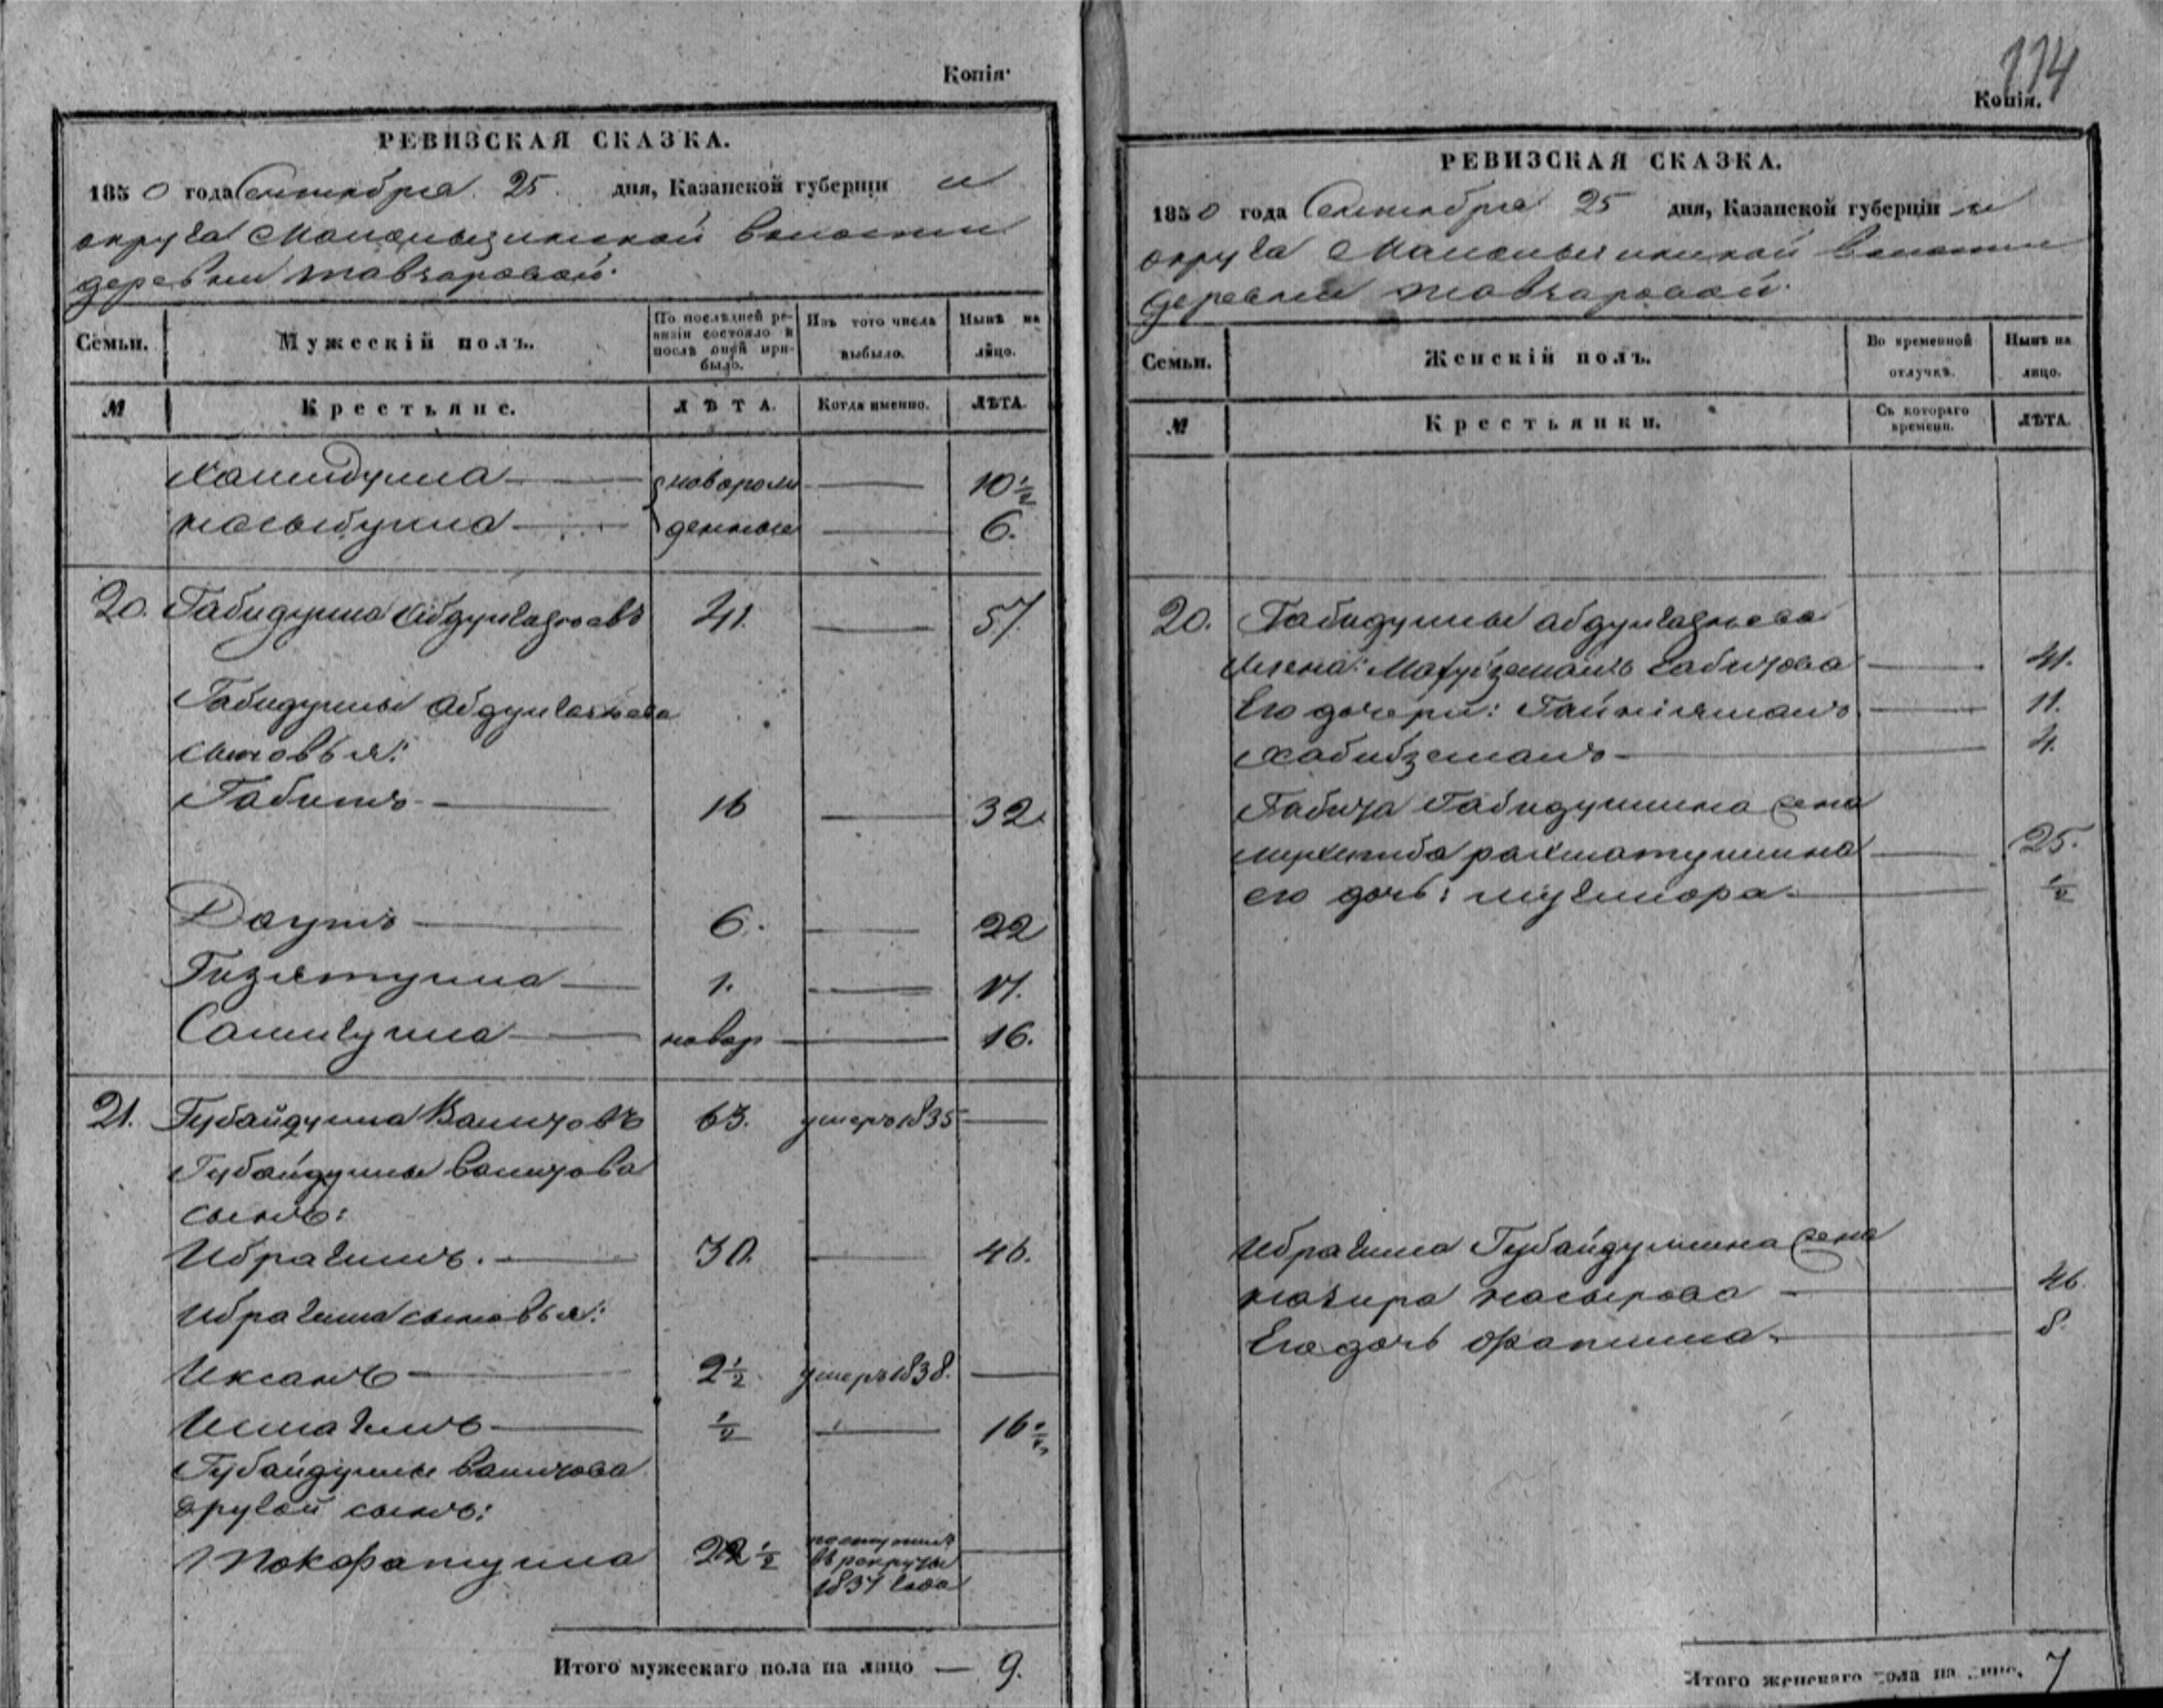 Копія.
РЕВИЗСКАЯ СКАЗКА.
1850 года Сентября 25 дня, Казанской губерніи и
округа волости
деревни Тавгаровой.
Семьи. Мужескій полъ. По послѣдней ревизіи состояло и послѣ оной прибыло. Изъ того числа выбыло. Нынѣ на лицо.
№ Крестьяне. ЛѢТА. Когда именно. ЛѢТА.
новорож 10½
Насыбулла денные 6.
20. Габидулла Абдулгазеевъ 41. 57.
Габидуллы Абдулгазеева
сыновья:
Габитъ 16 32.
Даутъ 6. 22
Гизятулла 1. 17.
Самигулла новор 16.
21. Губайдулла Валитовъ 63. умеръ 1835
Губайдуллы Валитова
сынъ:
Ибрагимъ. 30. 46.
Ибрагима сыновья:
Иксанъ 2½ умеръ 1838.
Исмагилъ ½ 16½
Губайдуллы Валитова
другой сынъ:
22½ поступилъ
въ рекруты
1837 года
Итого мужескаго пола на лицо — 9.
114
Копія.
РЕВИЗСКАЯ СКАЗКА.
1850 года Сентября 25 дня, Казанской губерніи и
округа волости
деревни Тавгаровой.
Семьи. Женскій полъ. Во временной отлучкѣ. Нынѣ на лицо.
№ Крестьянки. Съ котораго времени. ЛѢТА.
20. Габидуллы Абдулгазеева
жена: Габитова 41.
Его дочери: Гайніяманъ 11.
Хабибземанъ 4.
Габита Габидуллина жена
Рахматуллина 25.
его дочь: ½
Ибрагима Губайдуллина жена
Насырова 46.
Его дочь 8.
Итого женскаго пола на лицо, 7